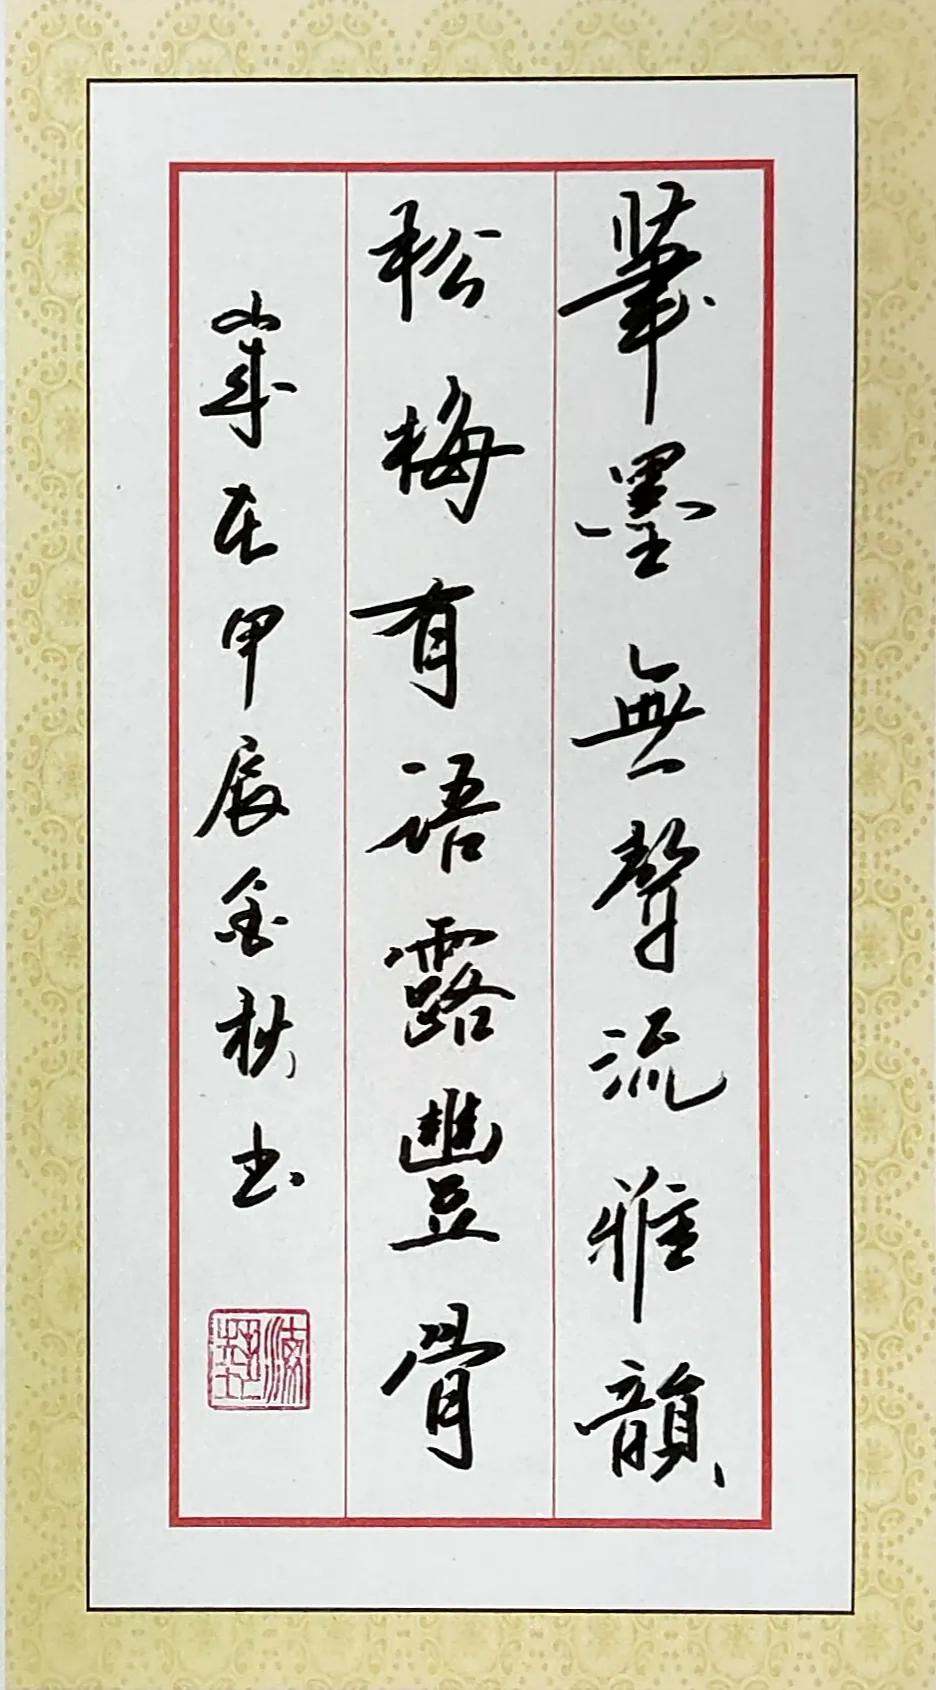 筆墨無聲流雅韻
松梅有語露豐骨
歲在甲辰金秋書